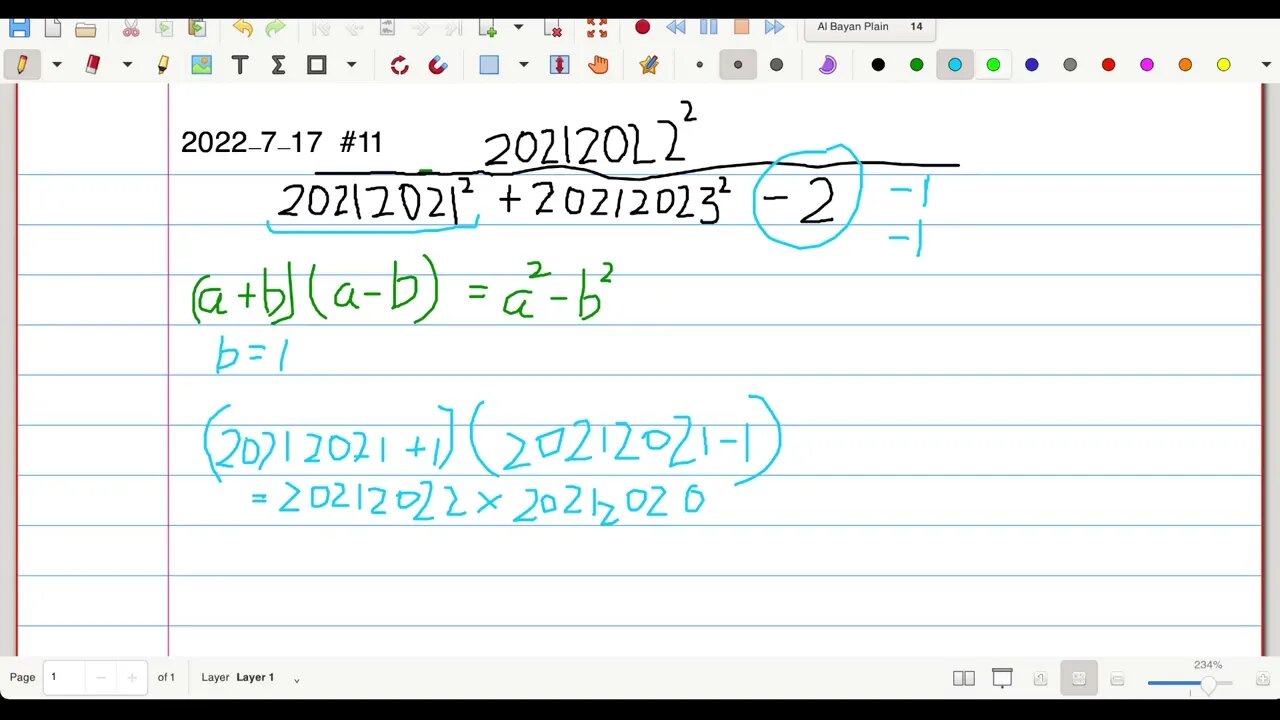 Al Bayan Plain 14
2022-7-17 #11
20212022²
20212021² + 20212023² - 2
-1
-1
(a+b)(a-b) = a² - b²
b = 1
(20212021+1)(20212021-1)
= 20212022 × 20212020
Page 1 of 1 Layer Layer 1
234%